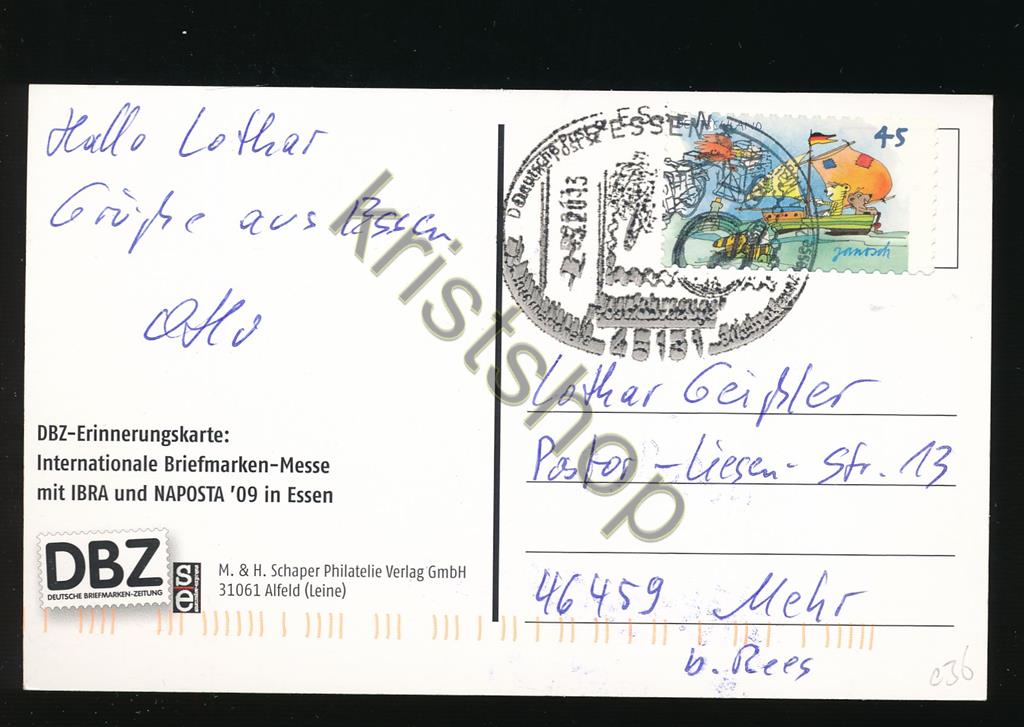 Hallo Lothar
Grüße aus Essen
Otto
DBZ-Erinnerungskarte:
Internationale Briefmarken-Messe
mit IBRA und NAPOSTA '09 in Essen
DBZ
DEUTSCHE BRIEFMARKEN-ZEITUNG
se
M. & H. Schaper Philatelie Verlag GmbH
31061 Alfeld (Leine)
ESSEN
Deutsche Post
45131
45
janosch
Lothar Geißler
Pastor-Liesen-Str. 13
46459 Mehr
b. Rees
c36
kristshop